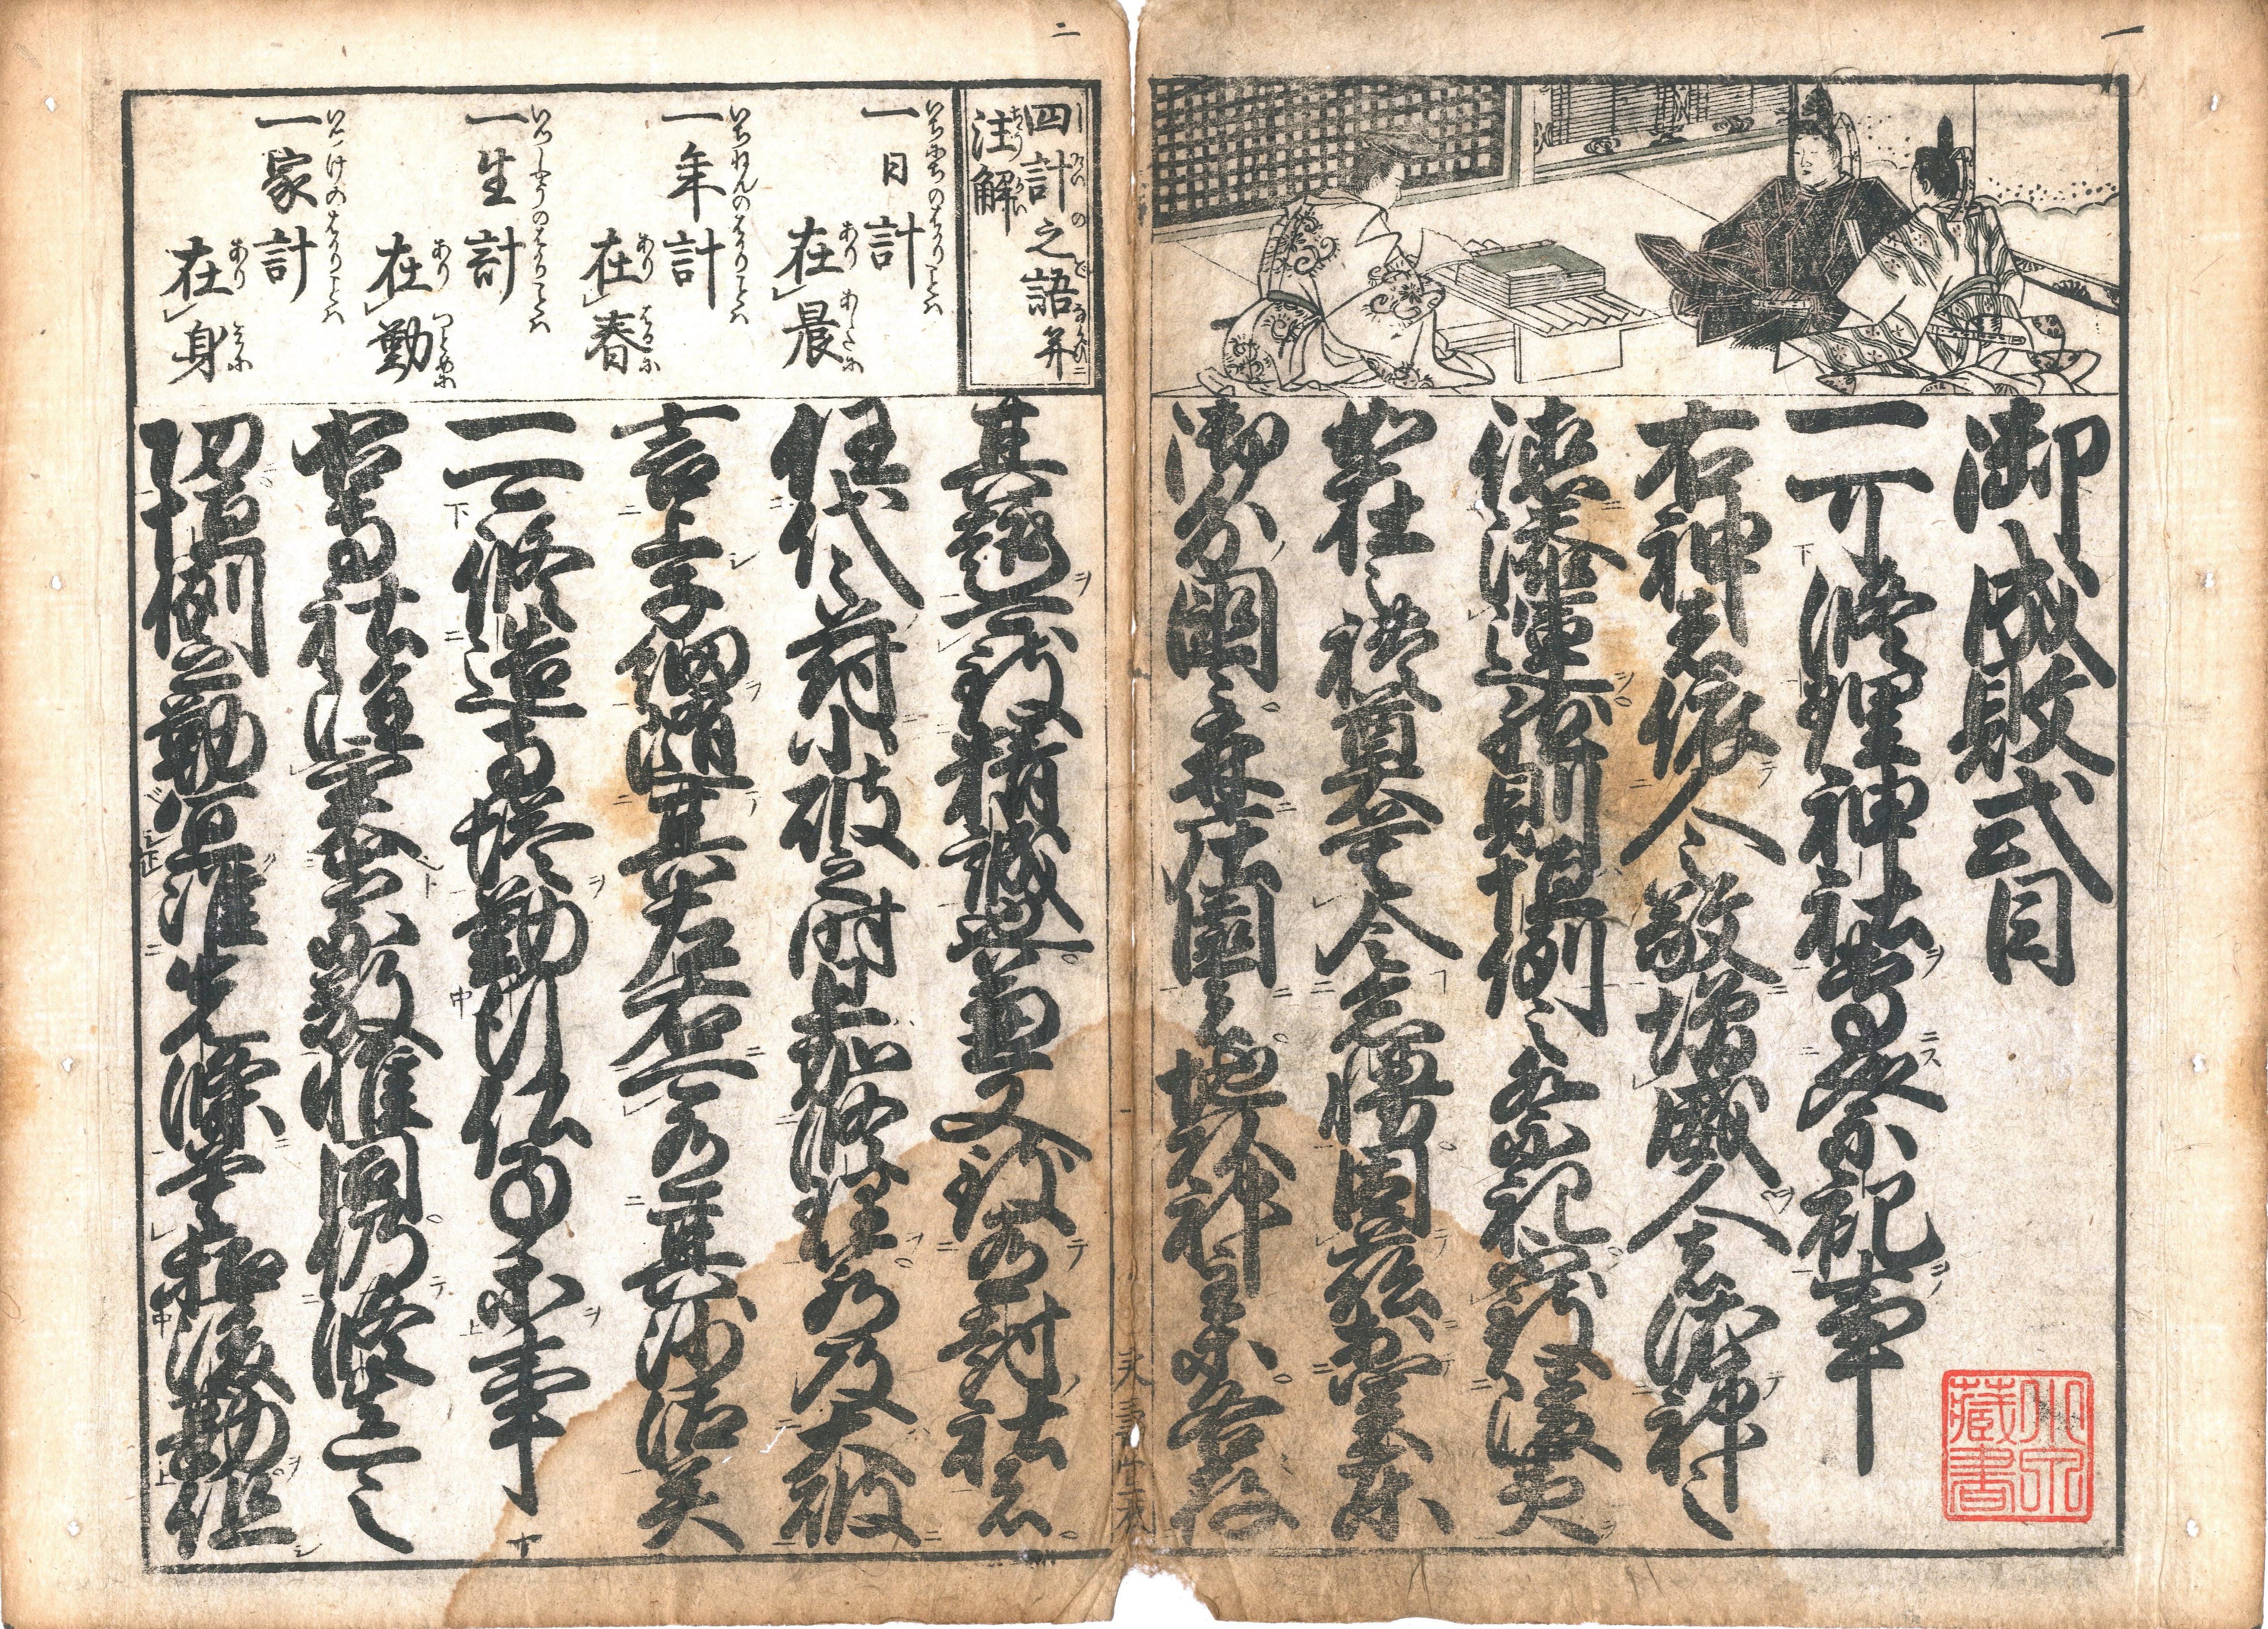 一
御成敗式目
一可修理神社専祭祀事
右神者依人之敬増威人者依神之
徳添運然則恒例之祭祀不致陵夷
如在之禮奠莫令怠慢因茲於関東
御分國々并庄園者地頭神主等各存
二
四計之語并
注解
一日計
在晨
一年計
在春
一生計
在勤
一家計
在身
其趣可致精誠也兼又至有封社者
任代々符小破之時且加修理若及大破
言上子細随其左右可有其沙汰矣
一可修造寺塔勤行仏事等事
右寺社雖異崇敬惟同仍修造之
功恒例之勤宜准先條莫招後勤但
蔵書